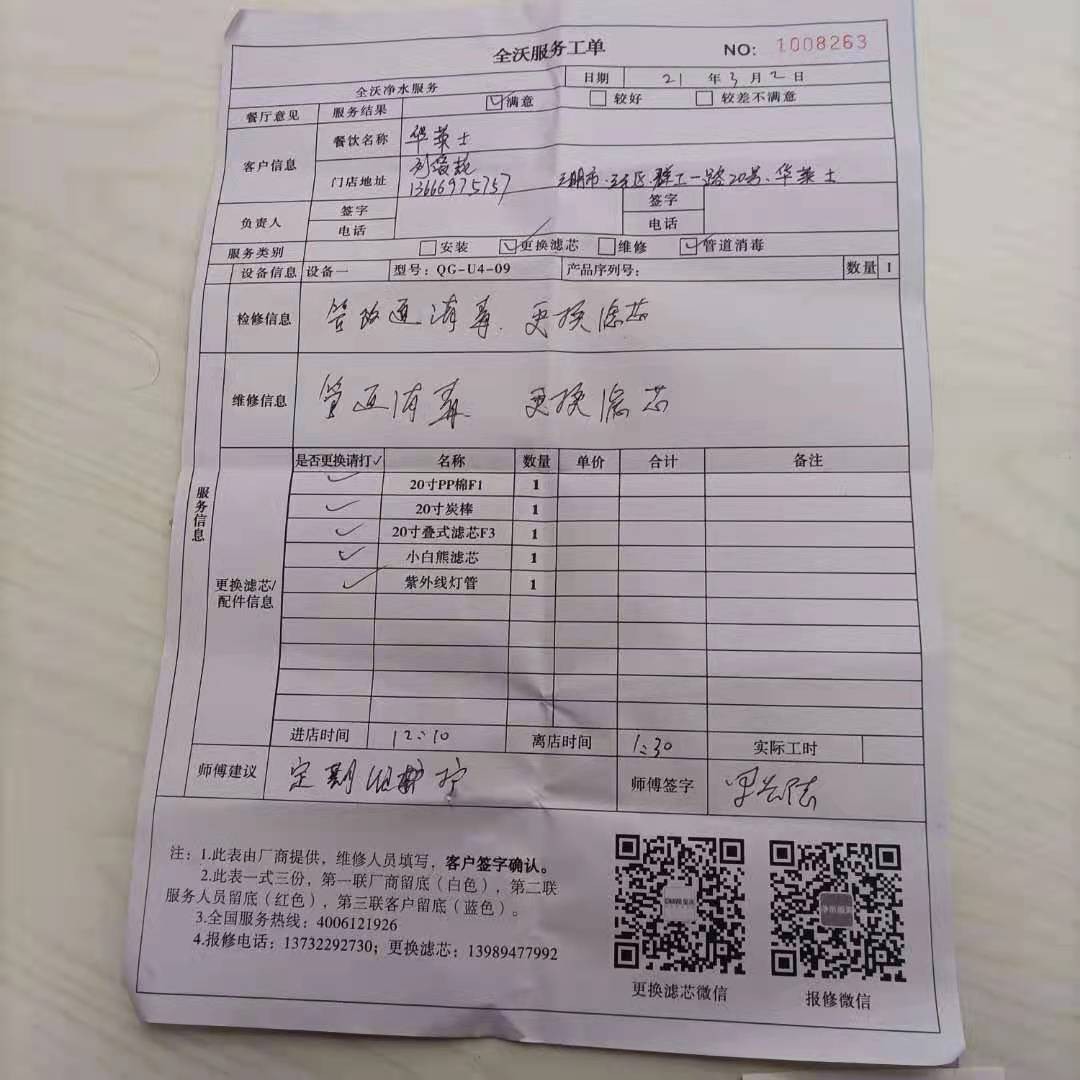 全沃服务工单 NO: 1008263
全沃净水服务 日期 21 年 3 月 2 日
餐厅意见 服务结果 ✓满意 较好 较差不满意
客户信息 餐饮名称 华莱士
门店地址 13666975757 三明市 三元区 群工一路20号、华莱士
负责人 签字 签字
电话 电话
服务类别 安装 ✓更换滤芯 维修 ✓管道消毒
设备信息 设备一 型号：QG-U4-09 产品序列号： 数量 1
检修信息 道消毒. 更换滤芯
维修信息 管道消毒 更换滤芯
服务信息
是否更换请打✓ 名称 数量 单价 合计 备注
✓ 20寸PP棉F1 1
✓ 20寸炭棒 1
✓ 20寸叠式滤芯F3 1
✓ 小白熊滤芯 1
✓ 紫外线灯管 1
更换滤芯/
配件信息
进店时间 12:10 离店时间 1:30 实际工时
师傅建议 定期 护 师傅签字
注：1.此表由厂商提供，维修人员填写，客户签字确认。
2.此表一式三份，第一联厂商留底（白色），第二联
服务人员留底（红色），第三联客户留底（蓝色）。
3.全国服务热线：4006121926
4.报修电话：13732292730；更换滤芯：13989477992
更换滤芯微信 报修微信